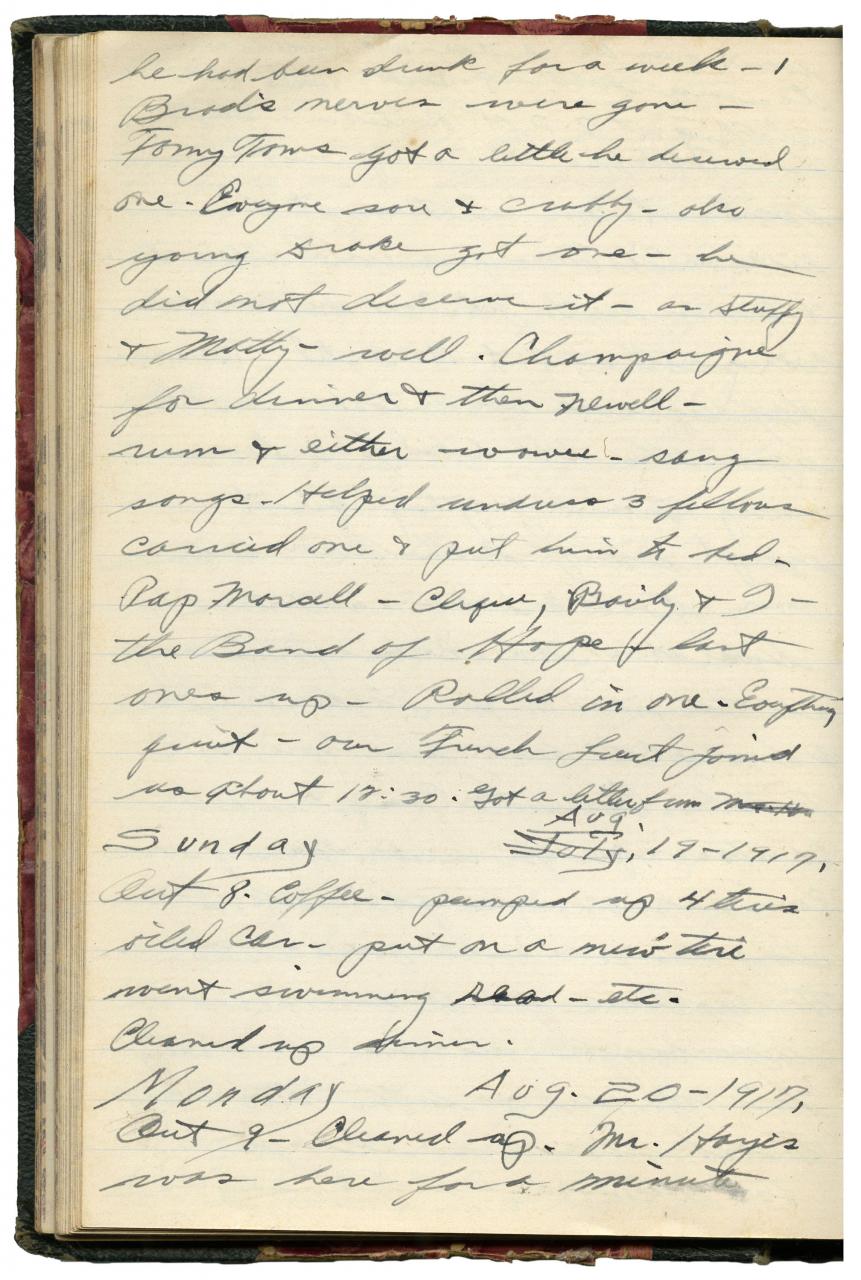 he had been drunk for a week -
Brad's nerves were gone -
Tomy Toms got a little he deserved
one. Everyone sore & crabby - also
young Drake got one - he
did not deserve it - as Stuffy
& Matty - well. Champaigne
for dinner & then Newell -
rum & either - wowee - sang
songs. Helped undress 3 fellows
carried one & put him to bed -
Pap - & I -
the Band of Hope & last
ones up - Rolled in one. Everything
quiet - our French Lieut joined
us about 12:30. Got a letter from
Aug.
Sunday July, 19-1917,
Out 8. Coffee - pumped up 4 tires
oiled car - put on a new tire
went swimming read - etc.
Cleaned up dinner.
Monday Aug. 20-1917,
Out 9 - Cleaned up. Mr. Hayes
was here for a minute